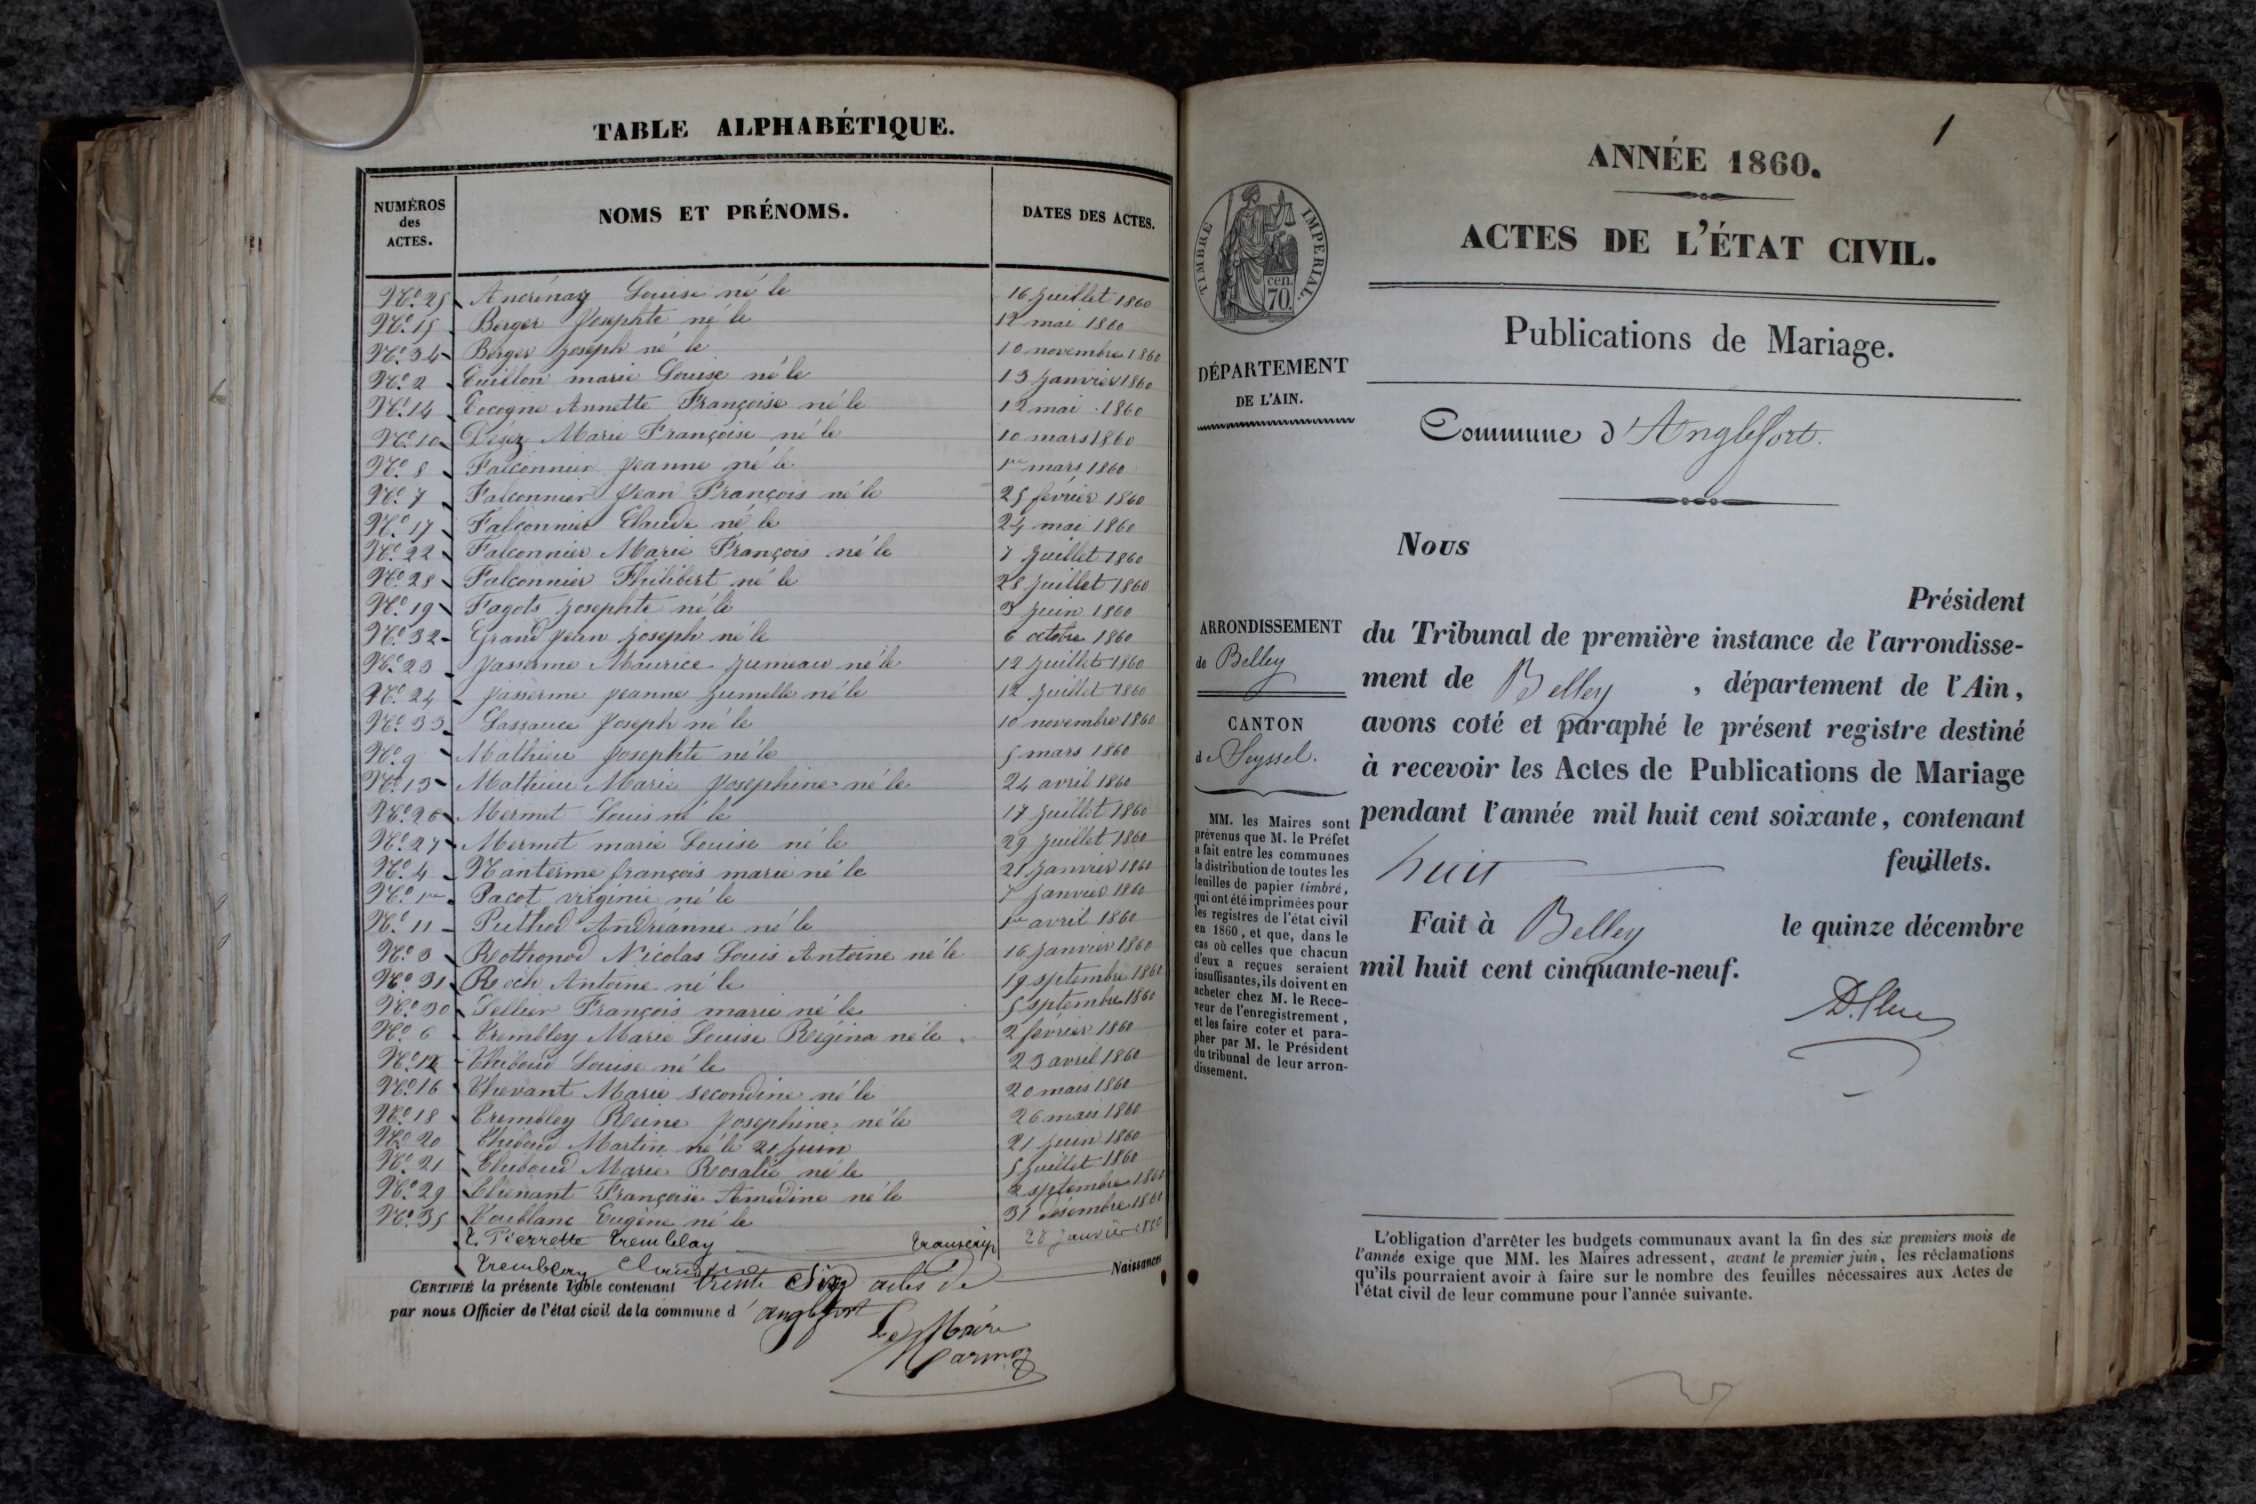 TABLE ALPHABÉTIQUE.
NUMÉROS des ACTES. NOMS ET PRÉNOMS. DATES DES ACTES.
No. 25 Ancrenaz Louise né le 16 juillet 1860
No. 15 Berger Josephte né le 12 mai 1860
No. 34 Berger Joseph né le 10 novembre 1860
No. 2 Cuillon marie Louise né le 13 janvier 1860
No. 14 Cocogne Annette Françoise né le 12 mai 1860
No. 10 Marie Françoise né le 10 mars 1860
No. 8 Falconnier Jeanne né le 1er mars 1860
No. 7 Falconnier Jean François né le 25 février 1860
No. 17 Falconnier Claude né le 24 mai 1860
No. 22 Falconnier Marie François né le 7 juillet 1860
No. 28 Falconnier Philibert né le 28 juillet 1860
No. 19 Fagots Josephte né le 3 juin 1860
No. 32 Grand Jean Joseph né le 6 octobre 1860
No. 23 Jasserme Maurice Jumeau né le 12 juillet 1860
No. 24 Jasserme Jeanne Jumelle né le 12 juillet 1860
No. 33 Lassauce Joseph né le 10 novembre 1860
No. 9 Mathieu Josephte né le 5 mars 1860
No. 13 Mathieu Marie Josephine né le 24 avril 1860
No. 26 Mermet Louis né le 17 juillet 1860
No. 27 Mermet marie Louise né le 29 juillet 1860
No. 4 Nanterme françois marie né le 21 janvier 1860
No. 1er Pacot virginie né le 7 janvier 1860
No. 11 Puthod Andréanne né le 1er avril 1860
No. 3 Rothonod Nicolas Louis Antoine né le 16 janvier 1860
No. 31 Roch Antoine né le 19 septembre 1860
No. 30 Tellier François marie né le 5 septembre 1860
No. 6 Trembley Marie Louise Régina né le 2 février 1860
No. 12 Thiboud Louise né le 23 avril 1860
No. 16 Thevant Marie secondine né le 20 mais 1860
No. 18 Trembley Reine Josephine né le 26 mai 1860
No. 20 Thiboud Martin né le 21 juin 21 juin 1860
No. 21 Thiboud Marie Rosalie né le 5 juillet 1860
No. 29 Thenant Françoise Amédine né le 2 septembre 1860
No. 35 Toublanc Eugène né le 31 désembre 1860
5. Pierrette Tremblay transcrip 28 janvier 1860
Tremblay Claudine
CERTIFIÉ la présente Table contenant trente Six actes de Naissances
par nous Officier de l'état civil de la commune d'anglefort
Le Maire
Marmoz
1
ANNÉE 1860.
ACTES DE L'ÉTAT CIVIL.
TIMBRE IMPERIAL.
cen. 70.
Publications de Mariage.
DÉPARTEMENT
DE L'AIN.
Commune d'Anglefort.
Nous
Président
ARRONDISSEMENT
de Belley
CANTON
de Seyssel.
du Tribunal de première instance de l'arrondisse-
ment de Belley, département de l'Ain,
avons coté et paraphé le présent registre destiné
à recevoir les Actes de Publications de Mariage
pendant l'année mil huit cent soixante, contenant
huit feuillets.
Fait à Belley le quinze décembre
mil huit cent cinquante-neuf.
MM. les Maires sont
prévenus que M. le Préfet
a fait entre les communes
la distribution de toutes les
feuilles de papier timbré,
qui ont été imprimées pour
les registres de l'état civil
en 1860, et que, dans le
cas où celles que chacun
d'eux a reçues seraient
insuffisantes, ils doivent en
acheter chez M. le Rece-
veur de l'enregistrement,
et les faire coter et para-
pher par M. le Président
du tribunal de leur arron-
dissement.
L'obligation d'arrêter les budgets communaux avant la fin des six premiers mois de
l'année exige que MM. les Maires adressent, avant le premier juin, les réclamations
qu'ils pourraient avoir à faire sur le nombre des feuilles nécessaires aux Actes de
l'état civil de leur commune pour l'année suivante.